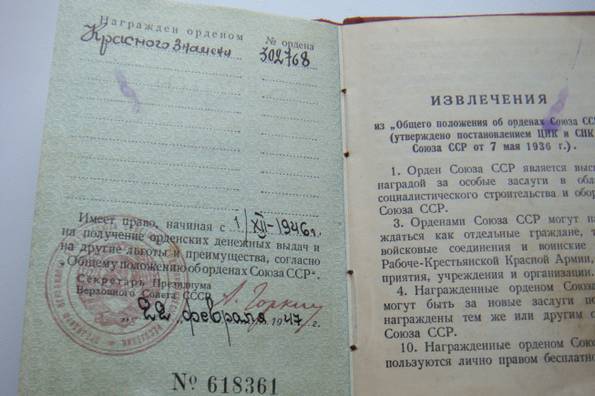 Награжден орденом
№ ордена
Красного Знамени
302768
Имеет право, начиная с 1/XII-1946 г.
на получение орденских денежных выдач и
на другие льготы и преимущества, согласно
„Общему положению об орденах Союза ССР“.
Секретарь Президиума
Верховного Совета СССР А. Горкин
22 февраля 1947 г.
№ 618361
ИЗВЛЕЧЕНИЯ
из „Общего положения об орденах Союза ССР
(утверждено постановлением ЦИК и СНК
Союза ССР от 7 мая 1936 г.).
1. Орден Союза ССР является выс
наградой за особые заслуги в обла
социалистического строительства и обор
Союза ССР.
3. Орденами Союза ССР могут на
ждаться как отдельные граждане, т
войсковые соединения и воинские
Рабоче-Крестьянской Красной Армии,
приятия, учреждения и организации.
4. Награжденные орденом Союза
могут быть за новые заслуги по
награждены тем же или другим о
Союза ССР.
10. Награжденные орденом Союз
пользуются лично правом бесплатно